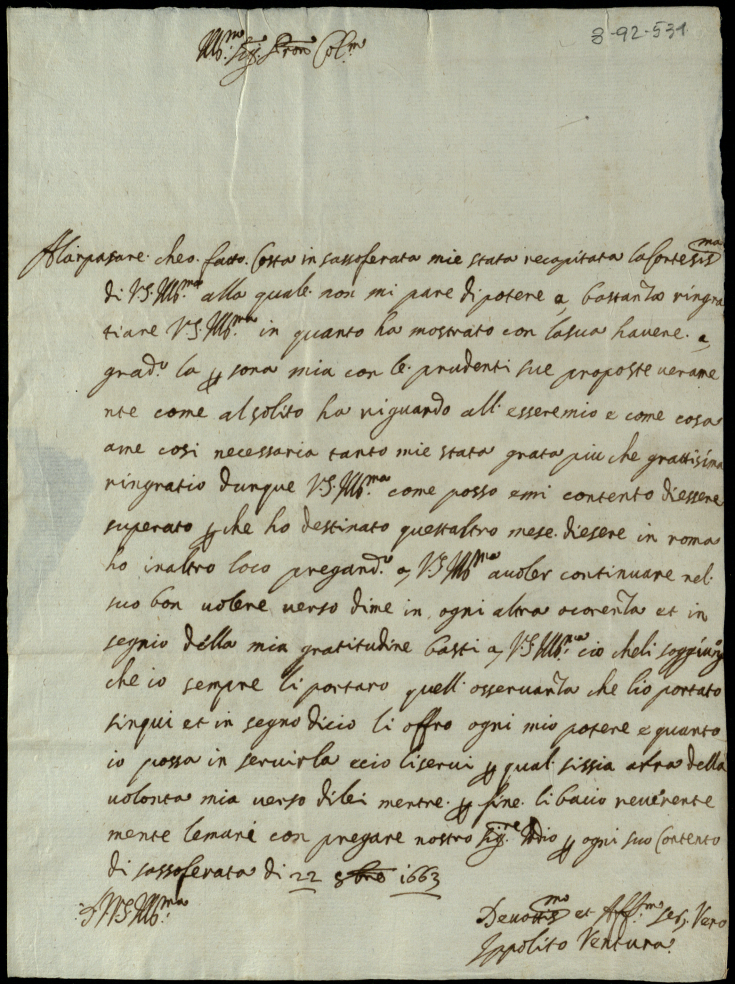 3-92-531
Ill.mo Sig.r P'ron Col.mo
Alarpasare cheo fatto Costa in sassoferata mie stata recapitata la Cortesis.ma
di V.S. Ill.ma alla quale non mi pare di potere a bastanza ringra
tiare V.S. Ill.ma in quanto ha mostrato con lasua havere a
grad.o la p sona mia con le prudenti sue proposte verame
nte come al solito ha riguardo all' esseremio e come cosa
ame cosi necessaria tanto mie stata grata piu che gratissima
ringratio dunque V.S. Ill.ma come posso emi contento diessere
superato p che ho destinato questaltro mese diesere in roma
ho inaltro loco pregand.o a V.S. Ill.ma avoler continuare nel
suo bon volere verso dime in ogni altra ocorenza et in
segnio della mia gratitudine basti a V.S. Ill.ma cio cheli soggiung
che io sempre li portaro quell' osservanza che lio portato
sinqui et in segno dicio li offro ogni mio potere e quanto
io possa in servirla ecio liservi p qual sissia atra della
volonta mia verso dilei mentre p fine li bacio reverente
mente lemani con pregare nostro Sig.re Idio p ogni suo Contento
di sassoferata di 22 8bre 1663
D V.S. Ill.ma
Devotis.mo et Aff.mo Ser. Vero
Ippolito Ventura